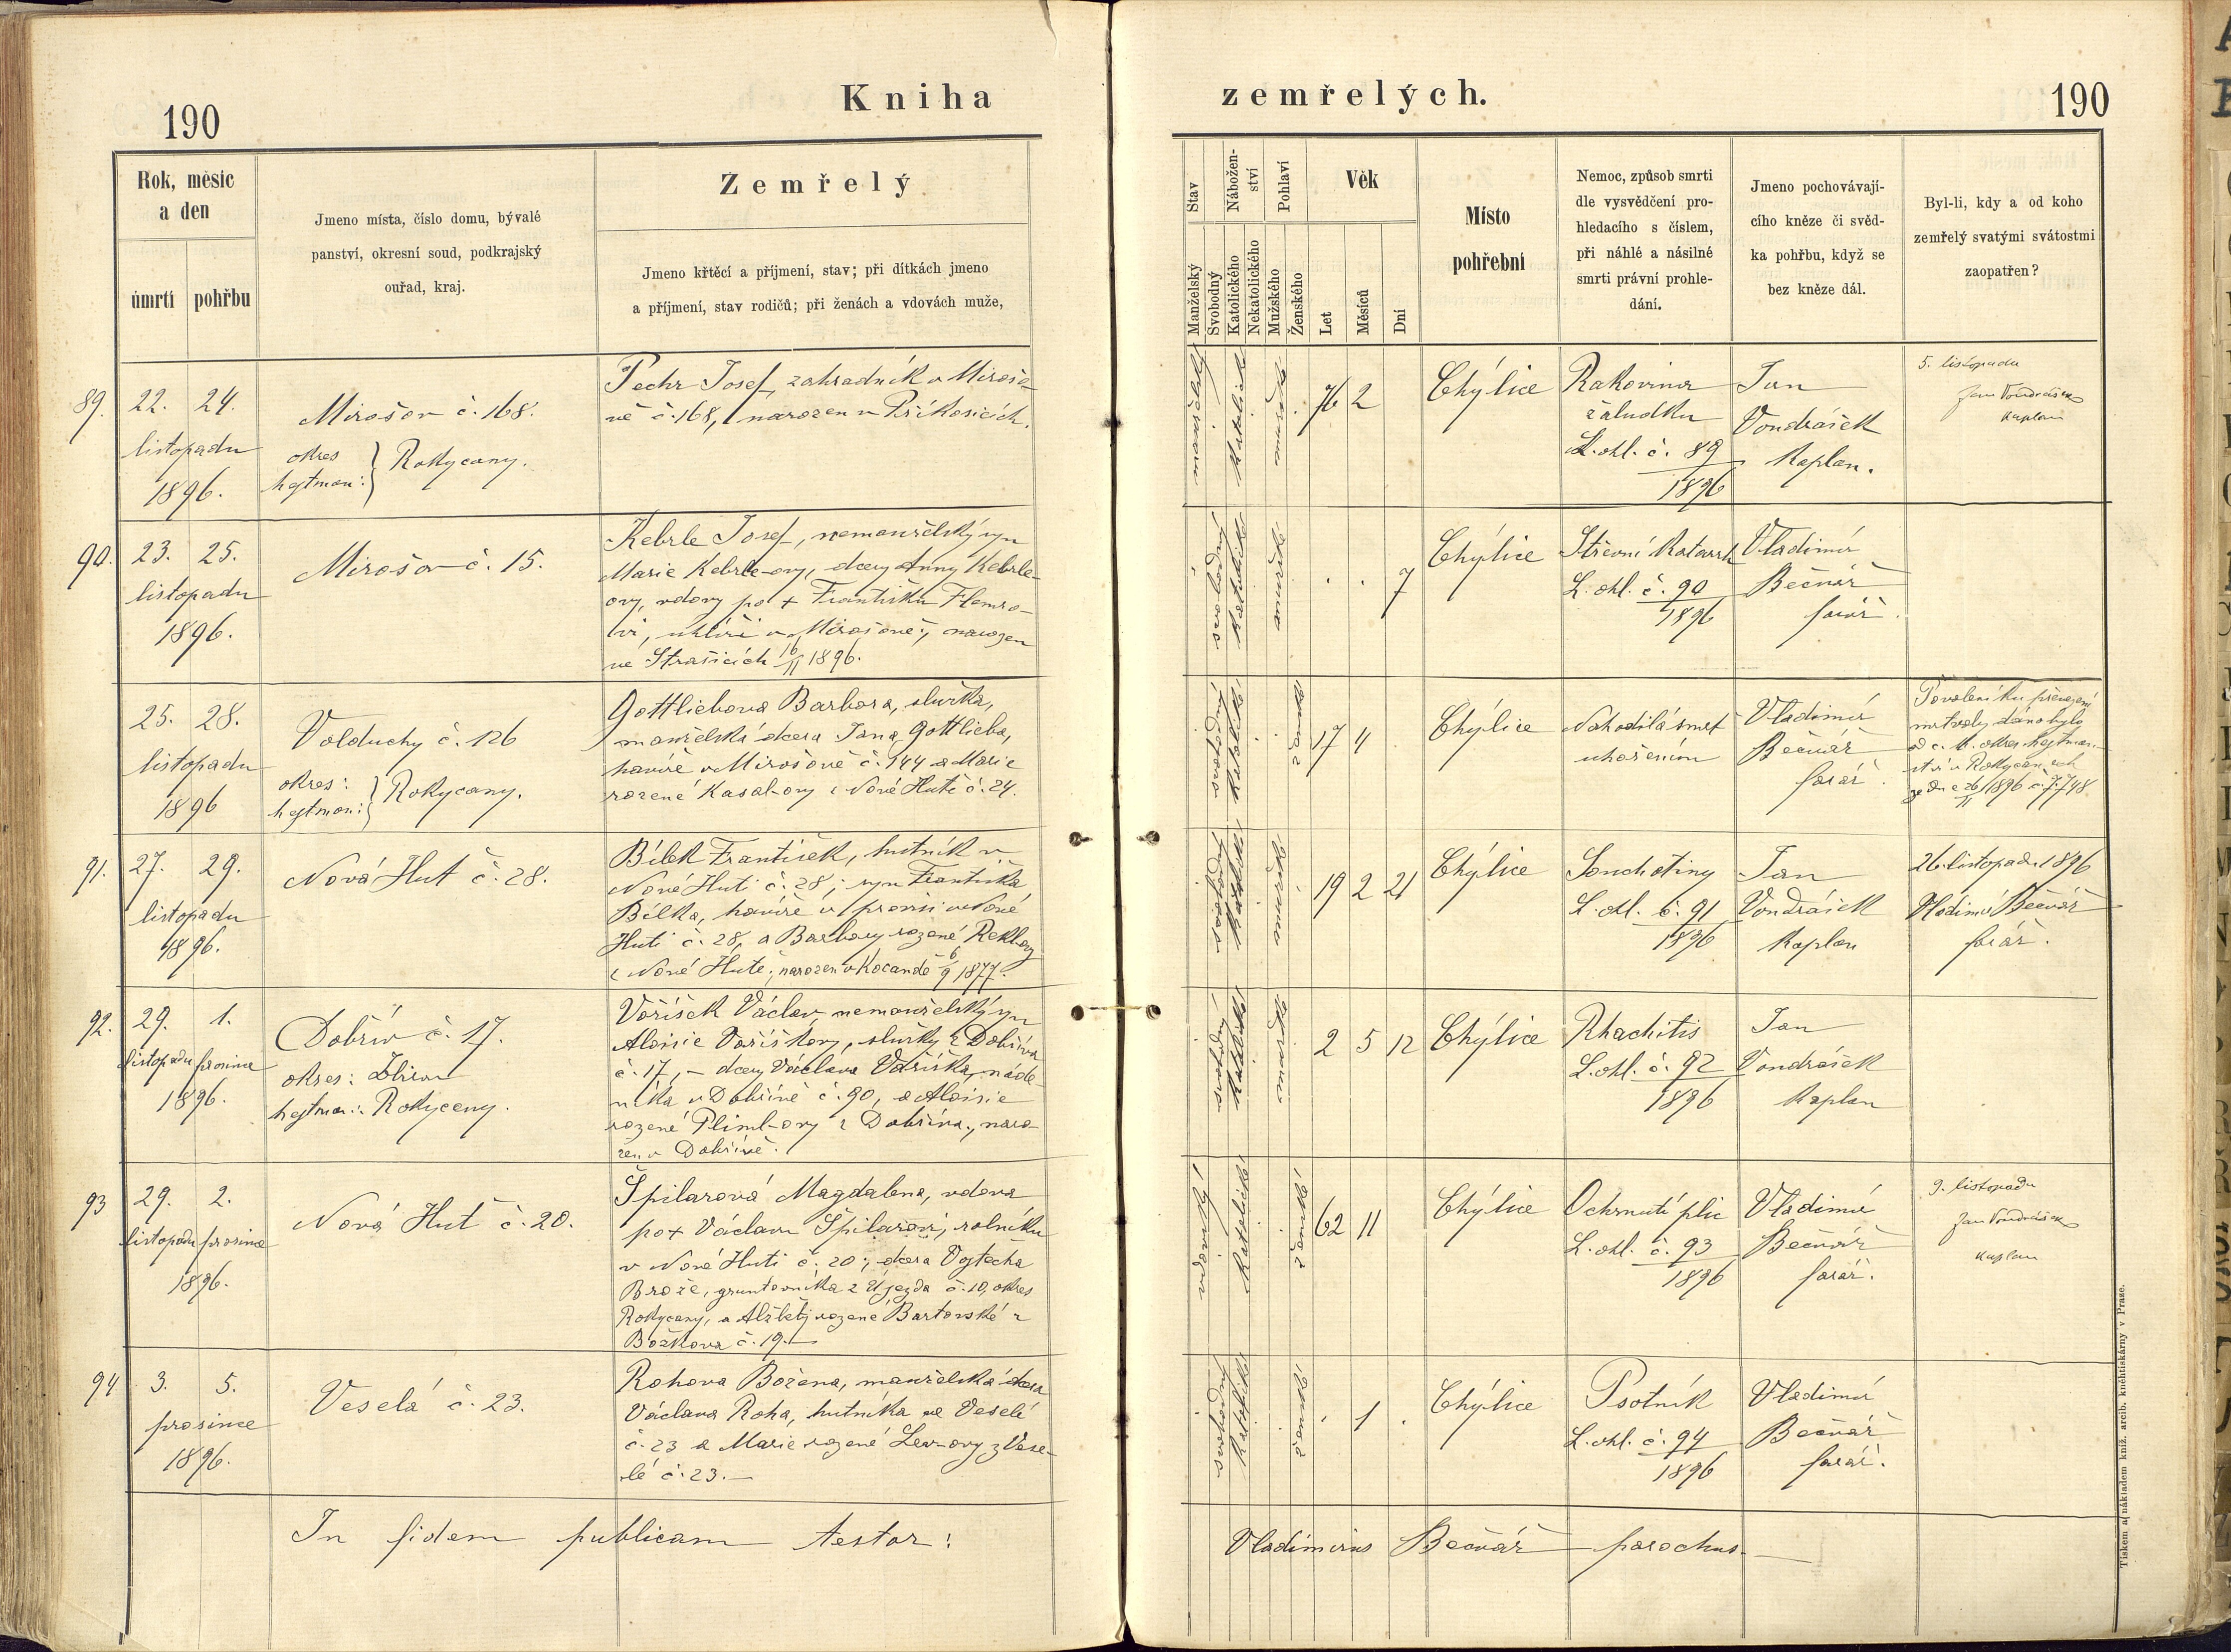 190
Kniha
zemřelých.
190
Rok, měsíc
a den
úmrtí
pohřbu
Jmeno místa, číslo domu, bývalé
panství, okresní soud, podkrajský
ouřad, kraj.
Zemřelý
Jmeno křtěcí a příjmení, stav; při dítkách jmeno
a příjmení, stav rodičů; při ženách a vdovách muže,
Stav
Manželský
Svobodný
Nábožen-
ství
Katolického
Nekatolického
Pohlaví
Mužského
Ženského
Věk
Let
Měsíců
Dní
Místo
pohřební
Nemoc, způsob smrti
dle vysvědčení pro-
hledacího s číslem,
při náhlé a násilné
smrti právní prohle-
dání.
Jmeno pochovávají-
cího kněze či svěd-
ka pohřbu, když se
bez kněze dál.
Byl-li, kdy a od koho
zemřelý svatými svátostmi
zaopatřen?
89.
22. 24.
listopadu
1896.
Mirošov č. 168.
okres
hejtman: } Rokycany.
Pechr Josef, zahradník v Mirošo-
vě č. 168, narozen v Příkosicích.
76 2
Chýlice
Rakovina
žaludku
L. ohl. č. 89
1896
Jan
Vondrášek
Kaplan.
5. listopadu
Jan Vondrášek
kaplan
90.
23. 25.
listopadu
1896.
Mirošov č. 15.
Kebrle Josef, nemanželský syn
Marie Kebrle-ovy, dcery Anny Kebrle-
ovy, vdovy po +
v Mirošově; narozen
ve Strašicích 16/11 1896.
svobodný
mužské
. . 7
Chýlice
Střevní Katarrh
L. ohl. č. 90
1896
Vladimír
Bečvář
farář.
25. 28.
listopadu
1896
Volduchy č. 126
okres:
hejtman: } Rokycany.
Gottliebova Barbora, služka,
manželská dcera Jana Gottlieba,
havíře v Mirošově č. 144 a Marie
rozené Kasal-ovy z Nové Hutě č. 24.
svobodná
katolické
ženské
17 4 .
Chýlice
Nahodilá smrt
udušením
Vladimír
Bečvář
farář.
Povolení ku převezení
mrtvoly dáno bylo
od c. k. okres. hejtman-
ství v Rokycanech
ze dne 26/11 1896 č. 7748
91.
27. 29.
listopadu
1896.
Nová Huť č. 28.
Bílek František, hutník v
Nové Huti č. 28; syn Františka
Bílka, havíře v provisi v Nové
Huti č. 28, a Barbory rozené
z Nové Hutě; narozen v Kocandě 6/9 1877.
19 2 21
Chýlice
Souchotiny
L. ohl. č. 91
1896
Jan
Vondrášek
Kaplan
26. listopadu 1896
Vladimír Bečvář
farář.
92.
29. 1.
listopadu prosince
1896.
Dobřív č. 17.
okres: Zbirov
hejtman: Rokycany.
Voříšek Václav, nemanželský syn
Aloisie Voříškovy, služky z Dobříva
č. 17, – dcery Václava Voříška, náde-
níka v Dobřívě č. 90, a Aloisie
rozené Pliml-ovy z Dobříva; naro-
zen v Dobřívě.
2 5 12
Chýlice
Rhachitis
L. ohl. č. 92
1896
Jan
Vondrášek
Kaplan
93
29. 2.
listopadu prosince
1896.
Nová Huť č. 20.
Špilarová Magdalena, vdova
po + Václavu Špilarovi, rolníku
v Nové Huti č. 20; dcera Vojtěcha
Brože, gruntovníka z Újezda č. 10, okres
Rokycany, a Alžběty rozené Bartovské z
Božkova č. 19. —
vdova
katolické
ženské
62 11
Chýlice
Ochrnutí plic
L. ohl. č. 93
1896
Vladimír
Bečvář
farář.
9. listopadu
Jan Vondrášek
kaplan
94
3. 5.
prosince
1896.
Veselá č. 23.
Rohova Božena, manželská dcera
Václava Roha, hutníka ve Veselé
č. 23 a Marie rozené z Vese-
lé č. 23. —
svobodný
katolické
ženské
. 1 .
Chýlice
Psotník
L. ohl. č. 94
1896
Vladimír
Bečvář
farář.
In fidem publicam testor:
Vladimirus Bečvář parochus. —
Tiskem a nákladem kníž. arcib. knihtiskárny v Praze.